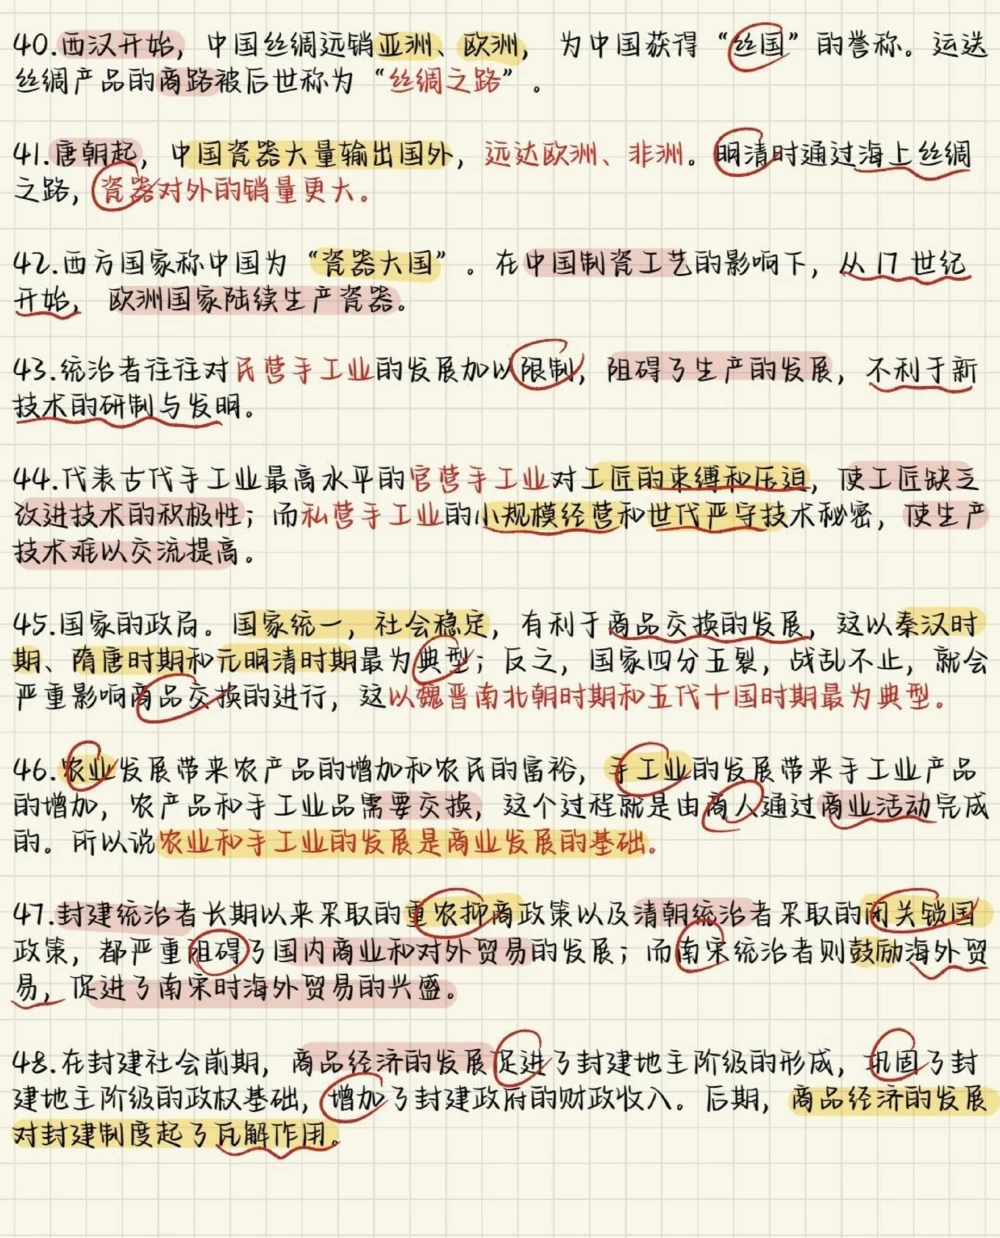 40.西汉开始，中国丝绸远销亚洲、欧洲，为中国获得“丝国”的誉称。运送
丝绸产品的商路被后世称为“丝绸之路”。
41.唐朝起，中国瓷器大量输出国外，远达欧洲、非洲。明清时通过海上丝绸
之路，瓷器对外的销量更大。
42.西方国家称中国为“瓷器大国”。在中国制瓷工艺的影响下，从17世纪
开始，欧洲国家陆续生产瓷器。
43.统治者往往对民营手工业的发展加以限制，阻碍了生产的发展，不利于新
技术的研制与发明。
44.代表古代手工业最高水平的官营手工业对工匠的束缚和压迫，使工匠缺乏
改进技术的积极性；而私营手工业的小规模经营和世代严守技术秘密，使生产
技术难以交流提高。
45.国家的政局。国家统一，社会稳定，有利于商品交换的发展，这以秦汉时
期、隋唐时期和元明清时期最为典型；反之，国家四分五裂，战乱不止，就会
严重影响商品交换的进行，这以魏晋南北朝时期和五代十国时期最为典型。
46.农业发展带来农产品的增加和农民的富裕，手工业的发展带来手工业产品
的增加，农产品和手工业品需要交换，这个过程就是由商人通过商业活动完成
的。所以说农业和手工业的发展是商业发展的基础。
47.封建统治者长期以来采取的重农抑商政策以及清朝统治者采取的闭关锁国
政策，都严重阻碍了国内商业和对外贸易的发展；而南宋统治者则鼓励海外贸
易，促进了南宋时海外贸易的兴盛。
48.在封建社会前期，商品经济的发展促进了封建地主阶级的形成，巩固了封
建地主阶级的政权基础，增加了封建政府的财政收入。后期，商品经济的发展
对封建制度起了瓦解作用。